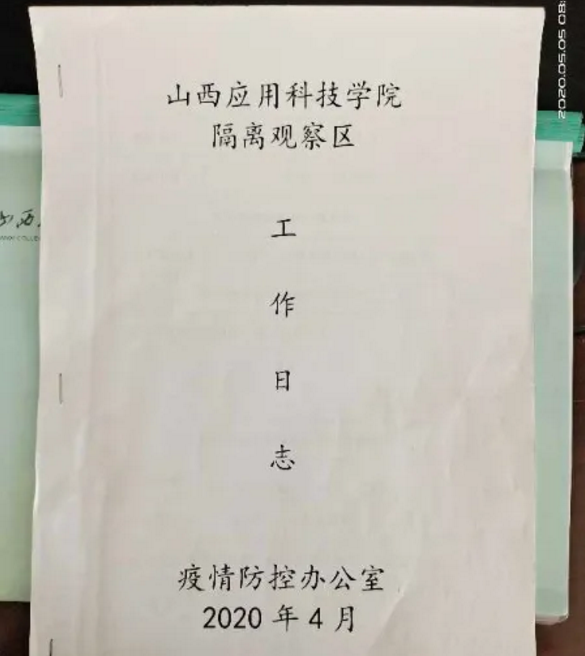 山西应用科技学院
隔离观察区
工
作
日
志
疫情防控办公室
2020 年 4 月
2020.05.05 08:
山西